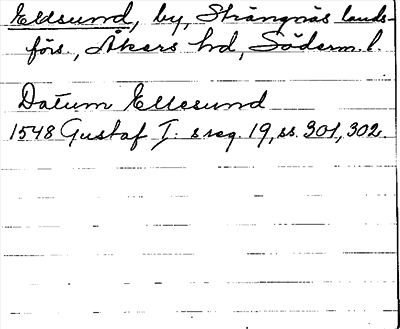 Ellsund, by, Strängnäs lands-
förs., Åkers hd, Söderm. l.
Datum Ellesund
1548 Gustaf I:s reg. 19, ss. 301, 302.